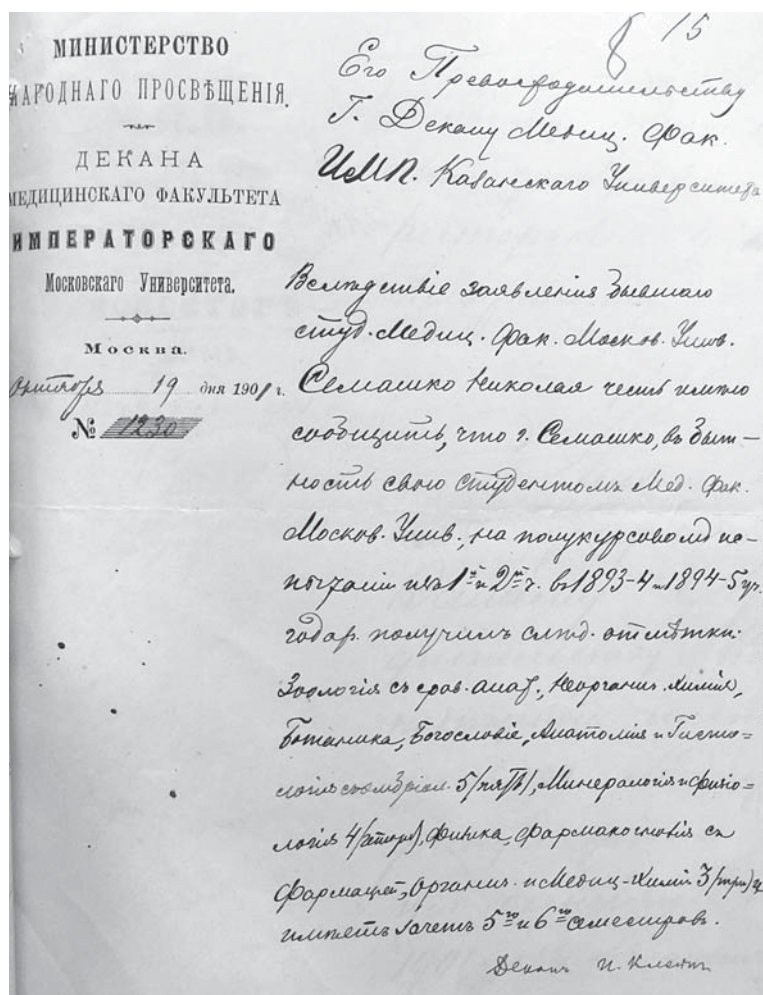 15
МИНИСТЕРСТВО
НАРОДНАГО ПРОСВѢЩЕНІЯ.
ДЕКАНА
МЕДИЦИНСКАГО ФАКУЛЬТЕТА
ИМПЕРАТОРСКАГО
Московскаго Университета.
Москва.
Октября 19 дня 1901 г.
№ 1230
Его Превосходительству
Г. Декану Медиц. Фак.
ИМП. Казанскаго Университета
Вслѣдствіе заявленія бывшаго
студ. Медиц. Фак. Москов. Унив.
Семашко Николая честь имѣю
сообщить, что г. Семашко, въ быт-
ность свою студентомъ Мед. Фак.
Москов. Унив., на полукурсовомъ ис-
пытаніи 1й и 2й ч. въ 1893-4 и 1894-5 уч.
годах. получилъ слѣд. отмѣтки:
Зоологія съ срав. анат., Неорганич. химія,
Ботаника, Богословіе, Анатомія и Гисто=
логія съ эмбріол. 5/пять/, Минералогія и физіо=
логія 4/четыре/, Физика, Фармакогнозія съ
Фармацеей, Органич. и Медиц-Химія 3/три/ и
имѣетъ зачетъ 5го и 6го семестровъ.
Деканъ И. Клейнъ